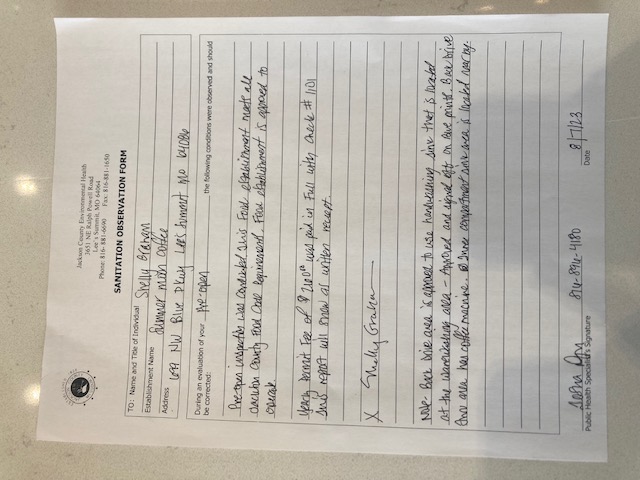 Jackson County Environmental Health
3651 NE Ralph Powell Road
Lee's Summit, MO 64064
Phone: 816-881-6690 Fax: 816-881-1650
SANITATION OBSERVATION FORM
TO: Name and Title of Individual Shelly Graham
Establishment Name Summer Moon Coffee
Address 699 NW Blue Pkwy Lees Summit MO 64086
During an evaluation of your pre-open the following conditions were observed and should
be corrected:
Pre-open inspection was conducted this Food establishment meets all
Jackson County Food Code requirement. Food establishment is approved to
operate
Yearly permit fee of $ 200.00 was paid in Full with check # 1101
This report will show as written receipt.
X Shelly Graham
Note- Back drive area is approved to use handwashing sink that is located
at the warewashing area - Approved and signed off on two prints. Back drive
thru area has coffee machine. 3 compartment sink area is located nearby.
816-896-4180 8/7/23
Public Health Specialist's Signature Date